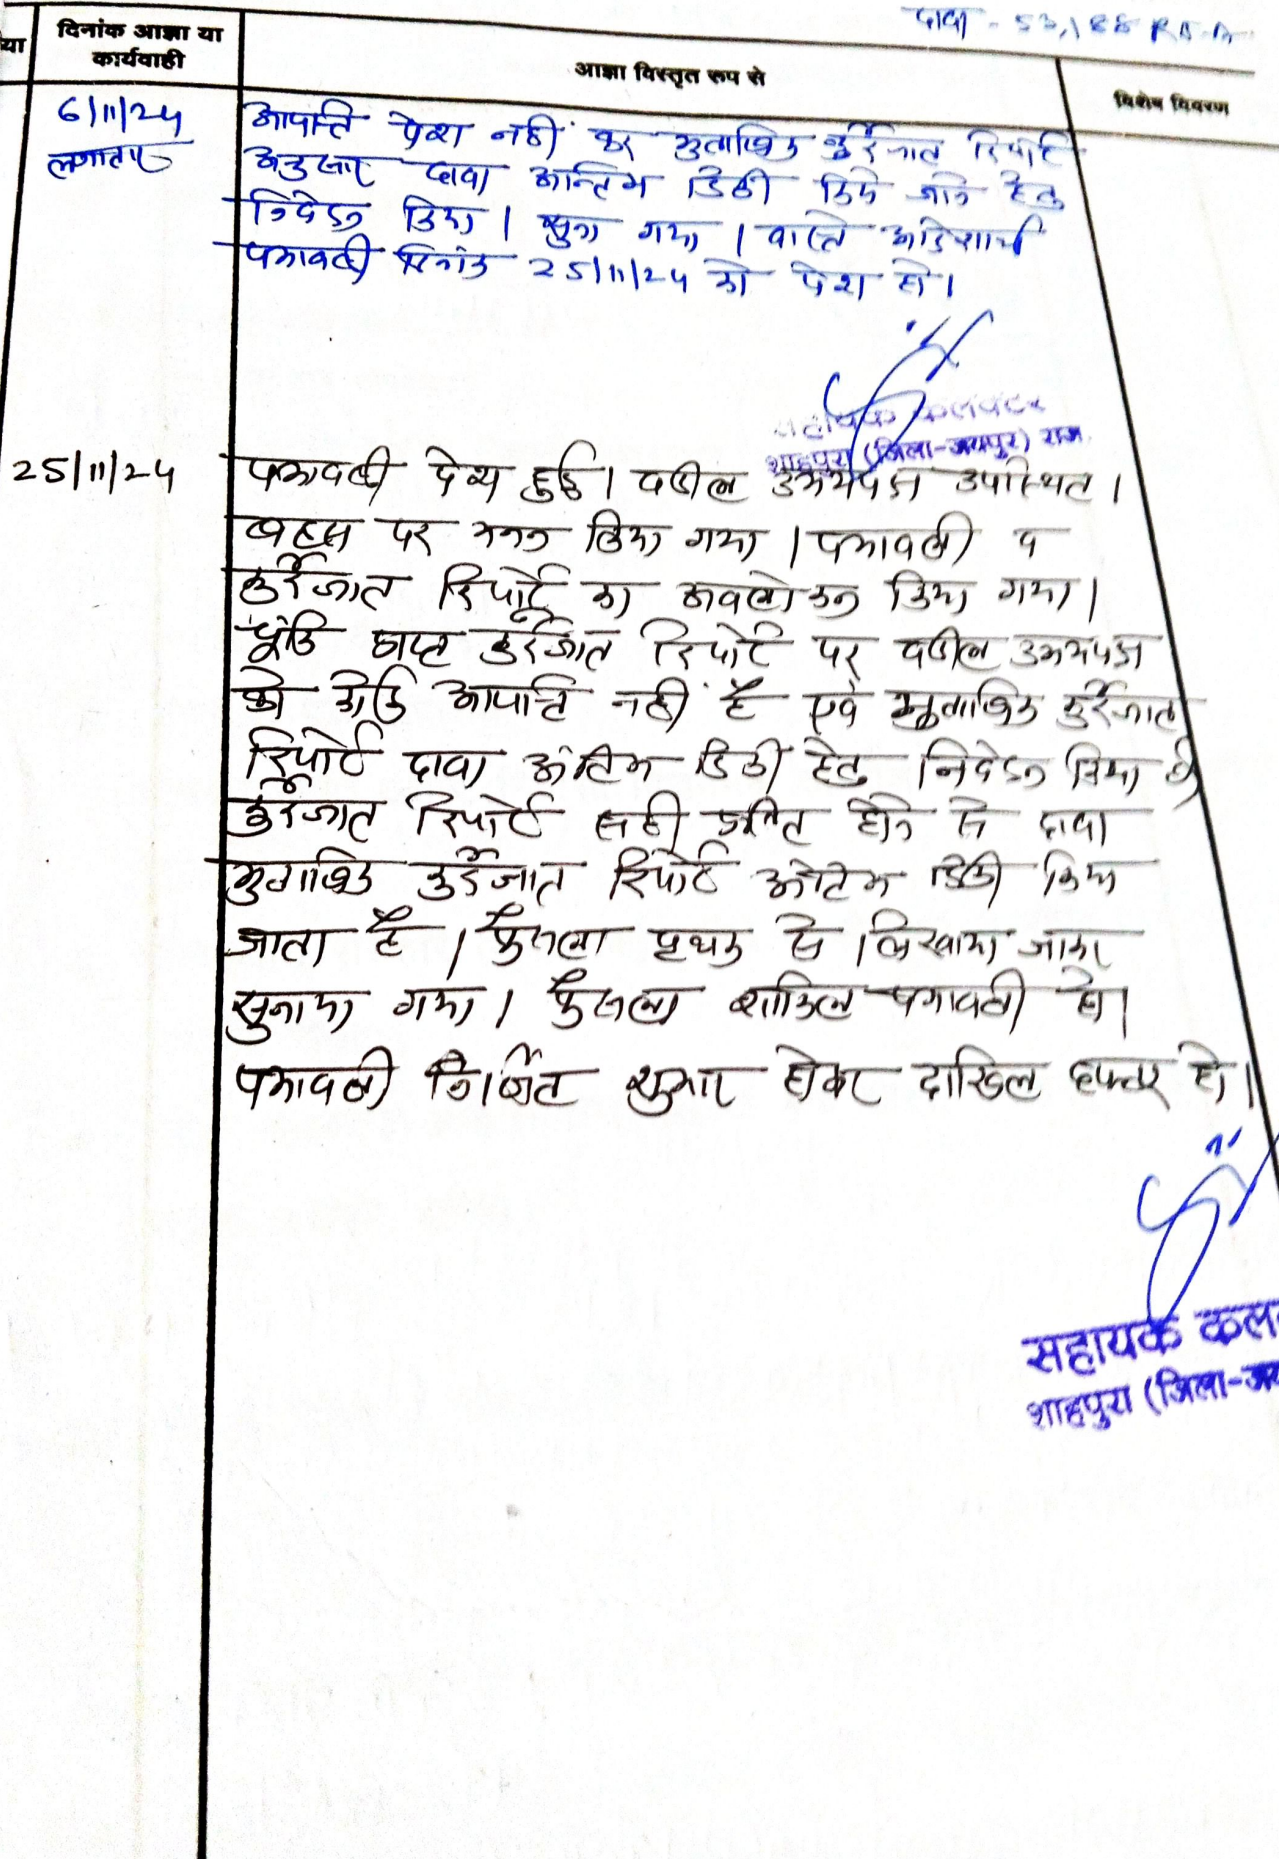 दावा - 53,188 R.T.A
या
दिनांक आज्ञा या
कार्यवाही
आज्ञा विस्तृत रूप से
विशेष विवरण
6/11/24
लगातार
आपत्ति पेश नहीं कर मुताबिक कुर्रेजात रिपोर्ट
अनुसार दावा अन्तिम डिक्री किये जाने हेतु
निवेदन किया। सुना गया। वास्ते आदेशार्थ
पत्रावली दिनांक 25/11/24 को पेश हो।
सहायक कलक्टर
शाहपुरा (जिला-जयपुर) राज.
25/11/24
पत्रावली पेश हुई। वकील उभयपक्ष उपस्थित।
बहस पर मनन किया गया। पत्रावली व
कुर्रेजात रिपोर्ट का अवलोकन किया गया।
चूंकि प्राप्त कुर्रेजात रिपोर्ट पर वकील उभयपक्ष
को कोई आपत्ति नहीं है एवं मुताबिक कुर्रेजात
रिपोर्ट दावा अंतिम डिक्री हेतु निवेदन किया है
कुर्रेजात रिपोर्ट सही प्रतीत होने से दावा
मुताबिक कुर्रेजात रिपोर्ट अंतिम डिक्री किया
जाता है। फैसला पृथक से लिखाया जाकर
सुनाया गया। फैसला शामिल पत्रावली हो।
पत्रावली निर्णित शुमार होकर दाखिल दफ्तर हो।
सहायक कल
शाहपुरा (जिला-जय